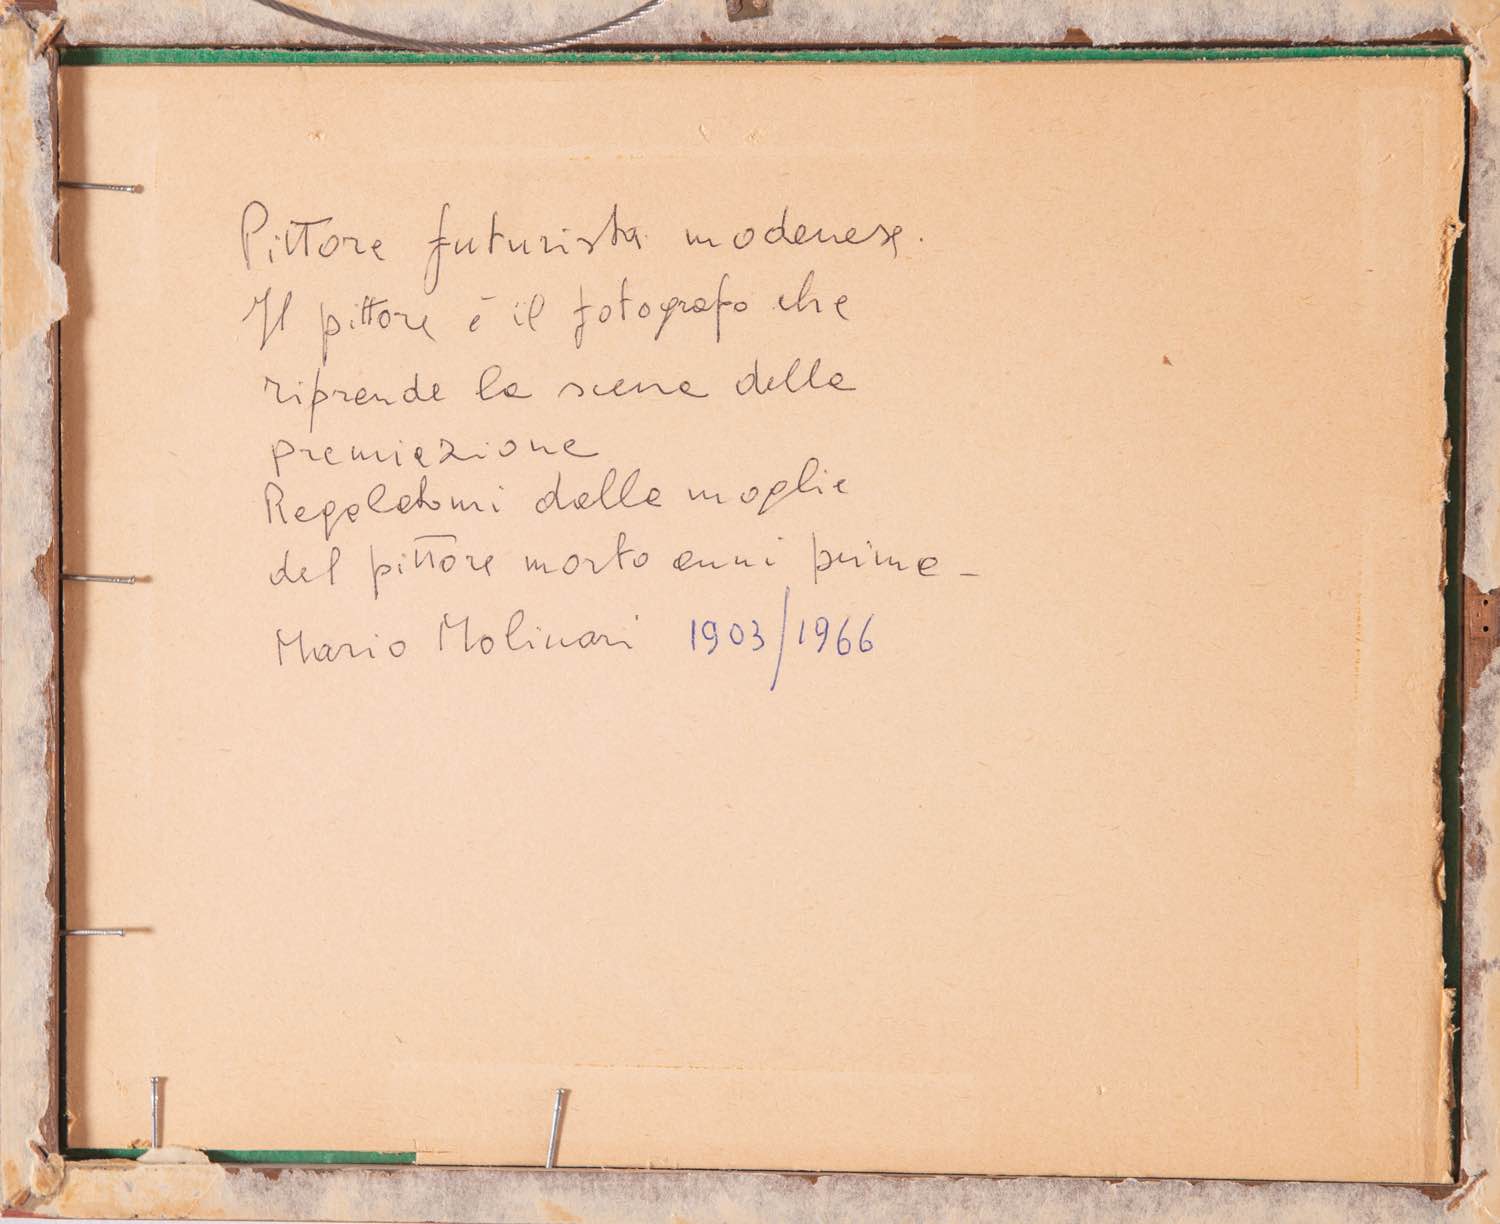 Pittore futurista modenese.
Il pittore è il fotografo che
riprende la scena della
premiazione
Regalatomi dalla moglie
del pittore morto anni prima -
Mario Molinari 1903/1966